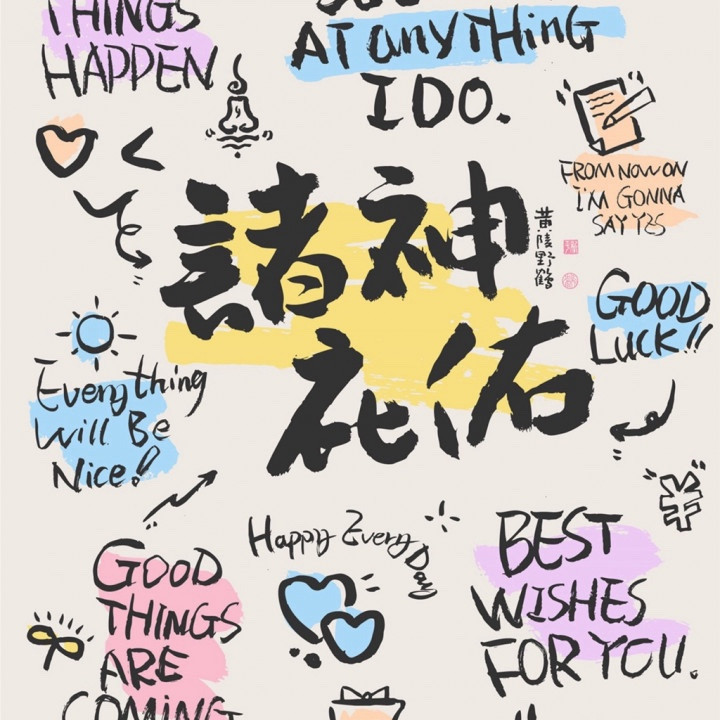 THINGS
HAPPEN
AT anyTHinG
I DO.
FROM NOW ON
I'M GONNA
SAY YES
諸神
庇佑
黄陵野鶴
GOOD
LUCK!!
Everything
Will Be
Nice!
¥
Happy Every Day
GOOD
THINGS
ARE
COMING
BEST
WISHES
FOR YOU.